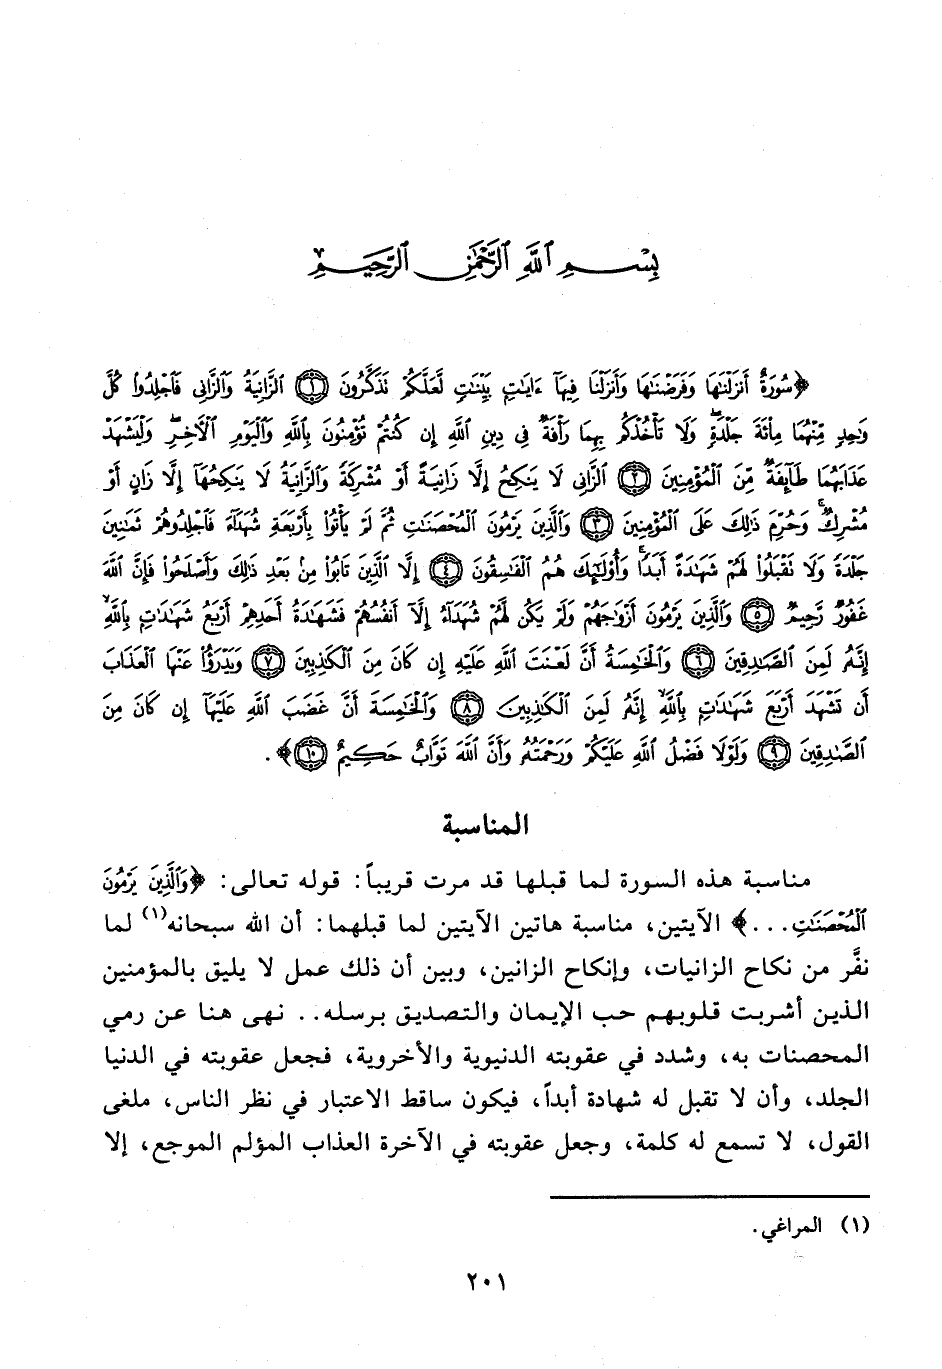 بِسْمِ ٱللَّهِ ٱلرَّحْمَٰنِ ٱلرَّحِيمِ
﴿سُورَةٌ أَنزَلْنَٰهَا وَفَرَضْنَٰهَا وَأَنزَلْنَا فِيهَآ ءَايَٰتٍۭ بَيِّنَٰتٍ لَّعَلَّكُمْ تَذَكَّرُونَ ﴿١﴾ ٱلزَّانِيَةُ وَٱلزَّانِى فَٱجْلِدُوا۟ كُلَّ
وَٰحِدٍ مِّنْهُمَا مِا۟ئَةَ جَلْدَةٍ ۖ وَلَا تَأْخُذْكُم بِهِمَا رَأْفَةٌ فِى دِينِ ٱللَّهِ إِن كُنتُمْ تُؤْمِنُونَ بِٱللَّهِ وَٱلْيَوْمِ ٱلْأَخِرِ ۖ وَلْيَشْهَدْ
عَذَابَهُمَا طَآئِفَةٌ مِّنَ ٱلْمُؤْمِنِينَ ﴿٢﴾ ٱلزَّانِى لَا يَنكِحُ إِلَّا زَانِيَةً أَوْ مُشْرِكَةً وَٱلزَّانِيَةُ لَا يَنكِحُهَآ إِلَّا زَانٍ أَوْ
مُشْرِكٌ ۚ وَحُرِّمَ ذَٰلِكَ عَلَى ٱلْمُؤْمِنِينَ ﴿٣﴾ وَٱلَّذِينَ يَرْمُونَ ٱلْمُحْصَنَٰتِ ثُمَّ لَمْ يَأْتُوا۟ بِأَرْبَعَةِ شُهَدَآءَ فَٱجْلِدُوهُمْ ثَمَٰنِينَ
جَلْدَةً وَلَا تَقْبَلُوا۟ لَهُمْ شَهَٰدَةً أَبَدًا ۚ وَأُو۟لَٰٓئِكَ هُمُ ٱلْفَٰسِقُونَ ﴿٤﴾ إِلَّا ٱلَّذِينَ تَابُوا۟ مِنۢ بَعْدِ ذَٰلِكَ وَأَصْلَحُوا۟ فَإِنَّ ٱللَّهَ
غَفُورٌ رَّحِيمٌ ﴿٥﴾ وَٱلَّذِينَ يَرْمُونَ أَزْوَٰجَهُمْ وَلَمْ يَكُن لَّهُمْ شُهَدَآءُ إِلَّآ أَنفُسُهُمْ فَشَهَٰدَةُ أَحَدِهِمْ أَرْبَعُ شَهَٰدَٰتٍۭ بِٱللَّهِ ۙ
إِنَّهُۥ لَمِنَ ٱلصَّٰدِقِينَ ﴿٦﴾ وَٱلْخَٰمِسَةُ أَنَّ لَعْنَتَ ٱللَّهِ عَلَيْهِ إِن كَانَ مِنَ ٱلْكَٰذِبِينَ ﴿٧﴾ وَيَدْرَؤُا۟ عَنْهَا ٱلْعَذَابَ
أَن تَشْهَدَ أَرْبَعَ شَهَٰدَٰتٍۭ بِٱللَّهِ ۙ إِنَّهُۥ لَمِنَ ٱلْكَٰذِبِينَ ﴿٨﴾ وَٱلْخَٰمِسَةَ أَنَّ غَضَبَ ٱللَّهِ عَلَيْهَآ إِن كَانَ مِنَ
ٱلصَّٰدِقِينَ ﴿٩﴾ وَلَوْلَا فَضْلُ ٱللَّهِ عَلَيْكُمْ وَرَحْمَتُهُۥ وَأَنَّ ٱللَّهَ تَوَّابٌ حَكِيمٌ ﴿١٠﴾﴾.
المناسبة
مناسبة هذه السورة لما قبلها قد مرت قريباً: قوله تعالى: ﴿وَٱلَّذِينَ يَرْمُونَ
ٱلْمُحْصَنَٰتِ...﴾ الآيتين، مناسبة هاتين الآيتين لما قبلهما: أن الله سبحانه(١) لما
نفَّر من نكاح الزانيات، وإنكاح الزانين، وبين أن ذلك عمل لا يليق بالمؤمنين
الذين أشربت قلوبهم حب الإيمان والتصديق برسله.. نهى هنا عن رمي
المحصنات به، وشدد في عقوبته الدنيوية والأخروية، فجعل عقوبته في الدنيا
الجلد، وأن لا تقبل له شهادة أبداً، فيكون ساقط الاعتبار في نظر الناس، ملغى
القول، لا تسمع له كلمة، وجعل عقوبته في الآخرة العذاب المؤلم الموجع، إلا
(١) المراغي.
٢٠١